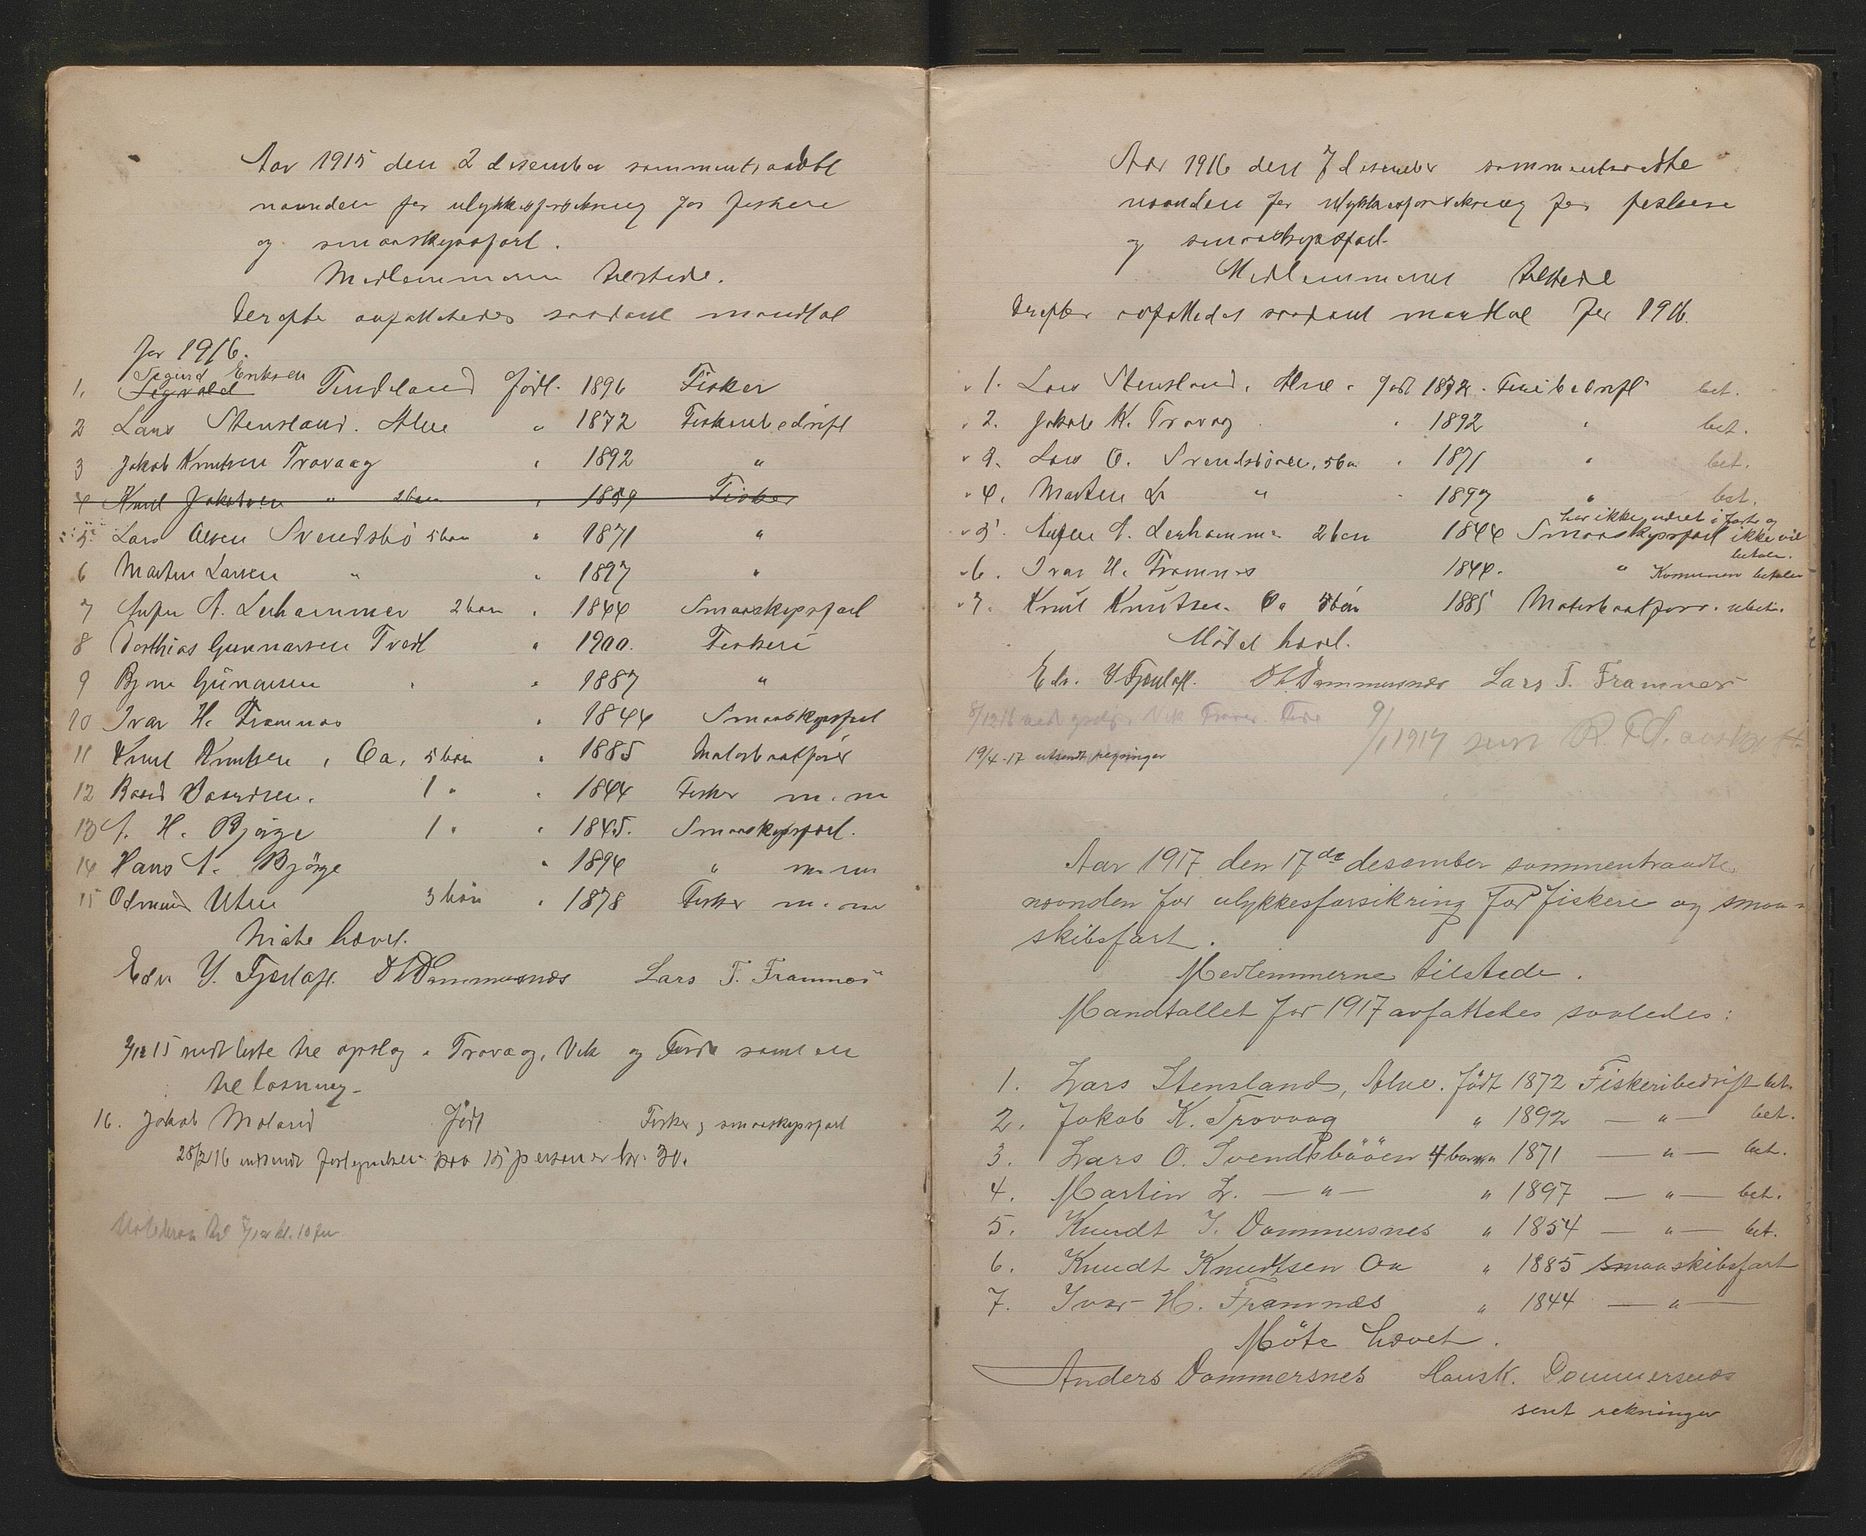 Aar 1915 den 2 desember sammentraadte
nævnden for ulykkesforsikring for fiskere
og smaaskipsfart.
Medlemmerne tilstede.
Derefter avfattedes saadant mandtal
for 1916.
Sigurd Eriksen
1. Sigvald Tindeland Født. 1896 Fisker
2 Lars Stensland. Alne „ 1872 Fiskeribedrift
3 Jakob Knutsen Trovaag „ 1892 „
4 Knut Jakobsen „ 2 barn „ 1859 Fisker
5 Lars Olsen Svendsbø 5 barn „ 1871 „
6 Martin Larsen „ „ 1897 „
7 A. Leirhammer 2 barn „ 1844 Smaaskipsfart
8 Matthias Gunnarsen Tvedt „ 1900. Fiskeri
9 Bjarne Gunarsen „ „ 1887 „
10 Ivar H. Framnæs „ 1844 Smaaskipsfart
11 Knut Knutsen, Oa, 5 barn „ 1885 Motorbaatfører
12 Baard Baardsen. 1 „ „ 1844 Fisker m. m
13 A. H. Bjørge 1 „ „ 1845. Smaaskipsfart.
14 Hans A. Bjørge „ 1894 „ m. m
15 Odmund Utne 3 barn „ 1878 Fisker m. m
Møte hævet.
Edv Y. Fjeldtoft. Lars T. Framnæs
2/12 15 nedl liste til opslag i Trovaag, Vik og Førde samt en
til losning.
16. Jakob Moland Født Fisker og smaaskipsfart
28/2 16 innsendt fortegnelsen paa 15 personer kr. 30.
kl. 10 fm
Aar 1916 den 7 desember sammentraadte
nævnden for ulykkesforsikring for fiskere
og smaaskipsfart.
Medlemmerne tilstede
Derefter avfattedes saadant mandtal for 1916.
1. Lars Stensland, Alne. Født 1872. Fiskeribedrift bet.
2. Jakob K. Trovaag „ 1892 „ bet.
3. Lars O. Svendsbøen, 5 ba „ 1871 „ bet.
4. Martin L. „ „ 1897 „ bet.
har ikke været i fart og
5. A. Leirhammer 2 ban 1844 Smaaskipsfart ikke vil
betale.
6. Ivar H. Framnes 1844. „ Kommunen betaler
7. Knut Knutsen. Oa 5 barn 1885 Motorbaatfører. ubet.
Mødet hævet.
Edv. Y Fjeldtoft. Lars T. Framnes
8/12 16 Vik Trovag Førde
9/1 1917
19/4-17 utsendt regninger
Aar 1917 den 17de desember sammentraadte
nævnden for ulykkesforsikring for fiskere og smaa-
skibsfart.
Medlemmerne tilstede.
Mandtallet for 1917 avfattedes saaledes:
1. Lars Stensland, Alne. født 1872 Fiskeribedrift bet.
2. Jakob K. Trovaag „ 1892 — „ — bet.
3. Lars O. Svendsbøen 4 barn „ 1871 — „ — bet.
4. Martin L. — „ — „ 1897 — „ — bet.
5. Knudt I. Dommersnes „ 1854 — „ — bet.
6. Knudt Knudtsen Oa „ 1885 smaaskibsfart
7. Ivar H. Framnæs „ 1844 — „ —
Møte hævet.
Anders Dommersnes Hans K. Dommersnæs
sent rekninger